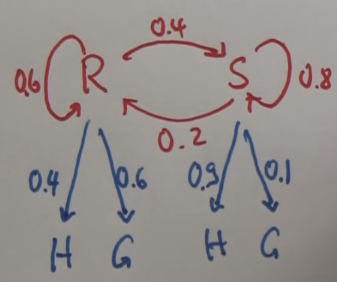 0.4
0.6 R S 0.8
0.2
0.4 0.6 0.9 0.1
H G H G